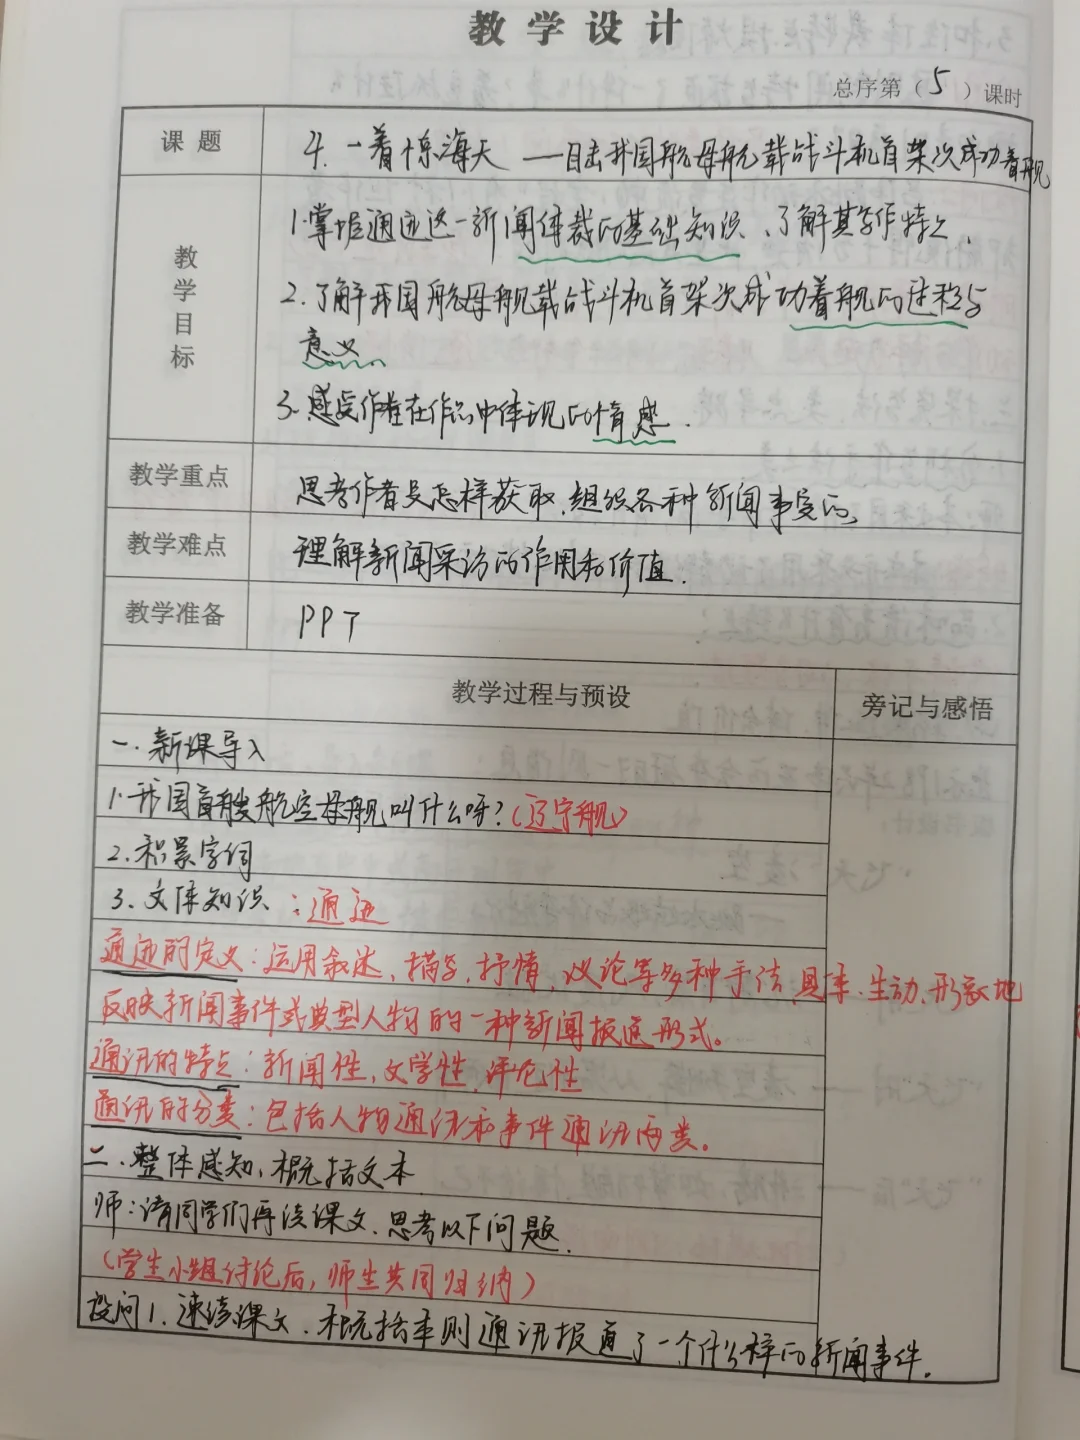 教学设计
总序第（5）课时
课题 4.一着惊海天——目击我国航母舰载战斗机首架次成功着舰
教学目标
1.掌握通迅这一新闻体裁的基础知识、了解其写作特点.
2.了解我国航母舰载战斗机首架次成功着舰的过程与
意义
3.感受作者在作品中体现的情感.
教学重点 思考作者是怎样获取、组织各种新闻事实的.
教学难点 理解新闻采访的作用和价值.
教学准备 PPT
教学过程与预设 旁记与感悟
一.新课导入
1.我国首艘航空母舰叫什么呀?(辽宁舰)
2.积累字词
3.文体知识：通迅
通迅的定义：运用叙述、描写、抒情、议论等多种手法,具体、生动、形象地
反映新闻事件或典型人物的一种新闻报道形式。
通讯的特点：新闻性,文学性,评论性
通讯的分类：包括人物通讯和事件通讯两类。
二.整体感知,概括文本
师：请同学们再读课文、思考以下问题.
(学生小组讨论后,师生共同归纳)
设问1.速读课文.概括本则通讯报道了一个什么样的新闻事件。